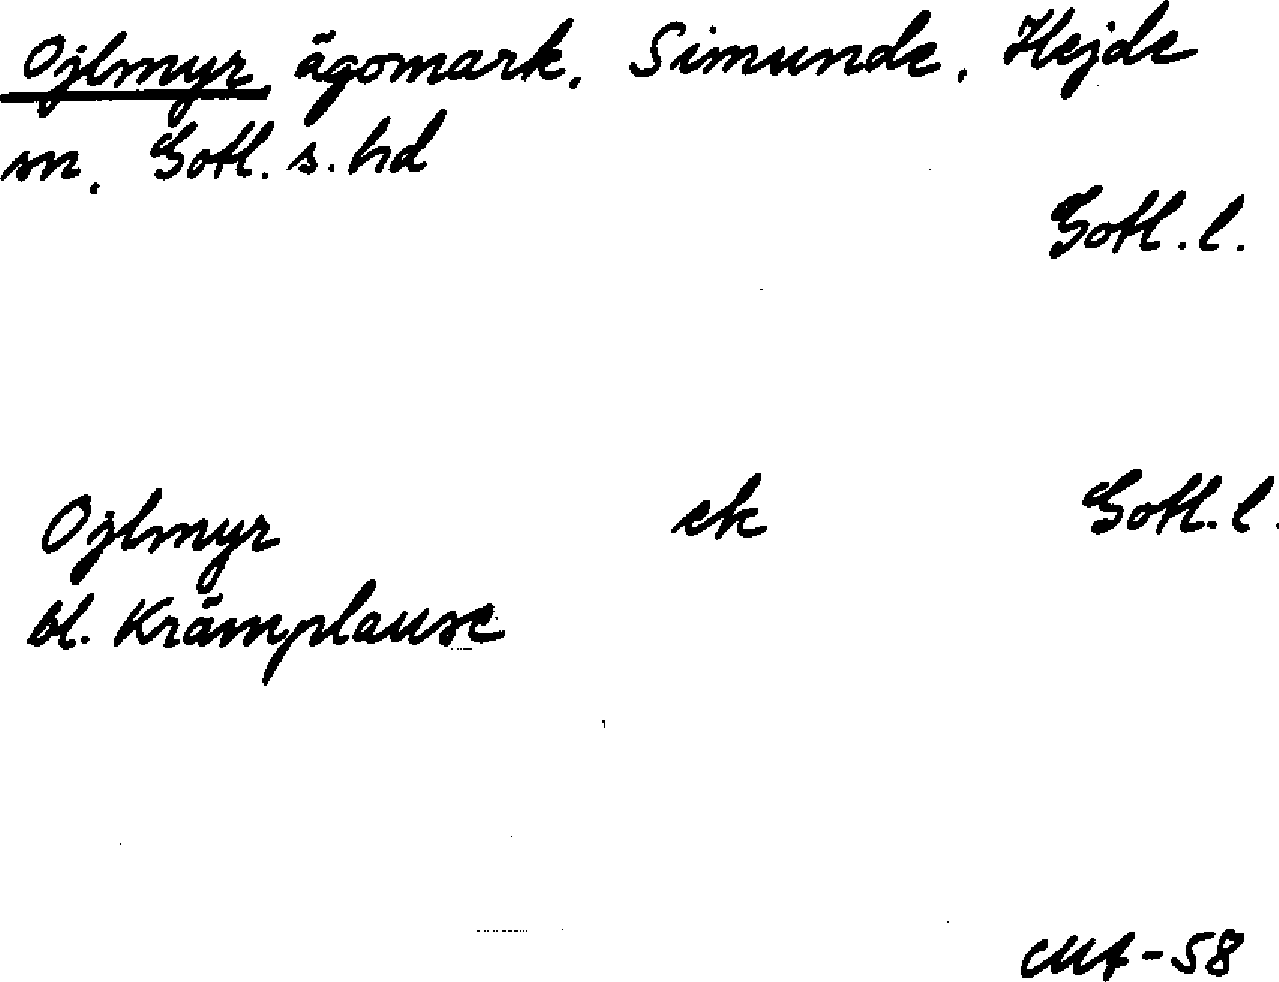 Ojlmyr, ägomark, Simunde, Hejde
sn, Gotl. s. hd
Gotl. l.
Ojlmyr ek Gotl. l.
bl. Krämplause
MA-58